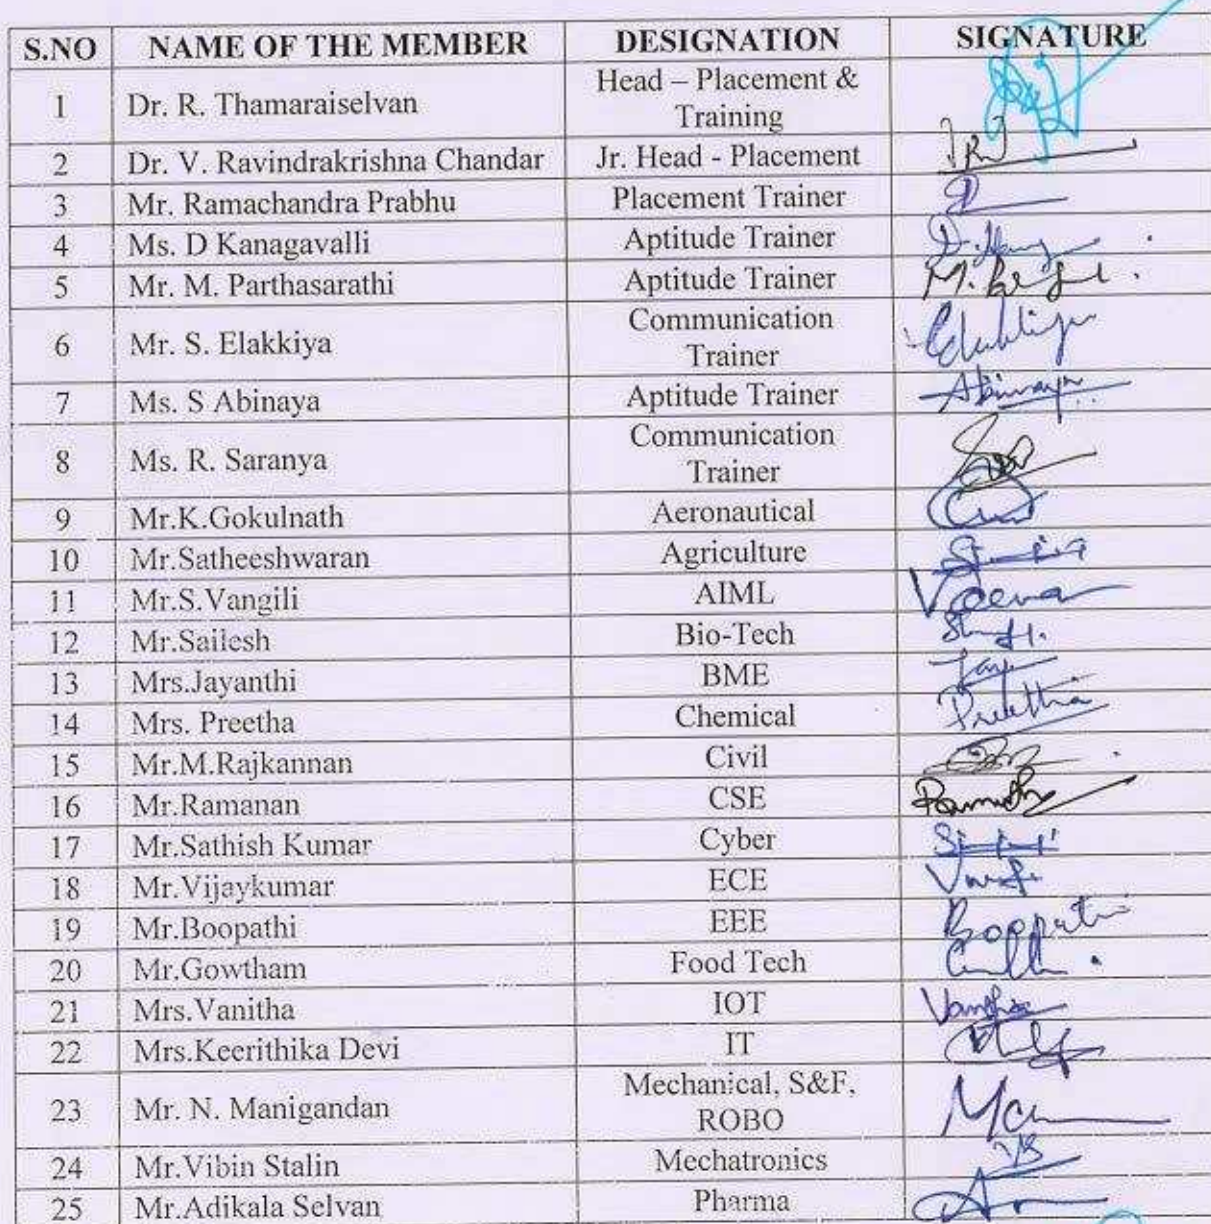 S.NO NAME OF THE MEMBER DESIGNATION SIGNATURE
1 Dr. R. Thamaraiselvan Head – Placement &
Training
2 Dr. V. Ravindrakrishna Chandar Jr. Head - Placement
3 Mr. Ramachandra Prabhu Placement Trainer
4 Ms. D Kanagavalli Aptitude Trainer
5 Mr. M. Parthasarathi Aptitude Trainer
6 Mr. S. Elakkiya Communication
Trainer
7 Ms. S Abinaya Aptitude Trainer Abinaya
8 Ms. R. Saranya Communication
Trainer
9 Mr.K.Gokulnath Aeronautical
10 Mr.Satheeshwaran Agriculture
11 Mr.S.Vangili AIML
12 Mr.Sailesh Bio-Tech
13 Mrs.Jayanthi BME
14 Mrs. Preetha Chemical Preetha
15 Mr.M.Rajkannan Civil
16 Mr.Ramanan CSE
17 Mr.Sathish Kumar Cyber
18 Mr.Vijaykumar ECE
19 Mr.Boopathi EEE Boopathi
20 Mr.Gowtham Food Tech
21 Mrs.Vanitha IOT
22 Mrs.Keerithika Devi IT
23 Mr. N. Manigandan Mechanical, S&F,
ROBO
24 Mr.Vibin Stalin Mechatronics
25 Mr.Adikala Selvan Pharma